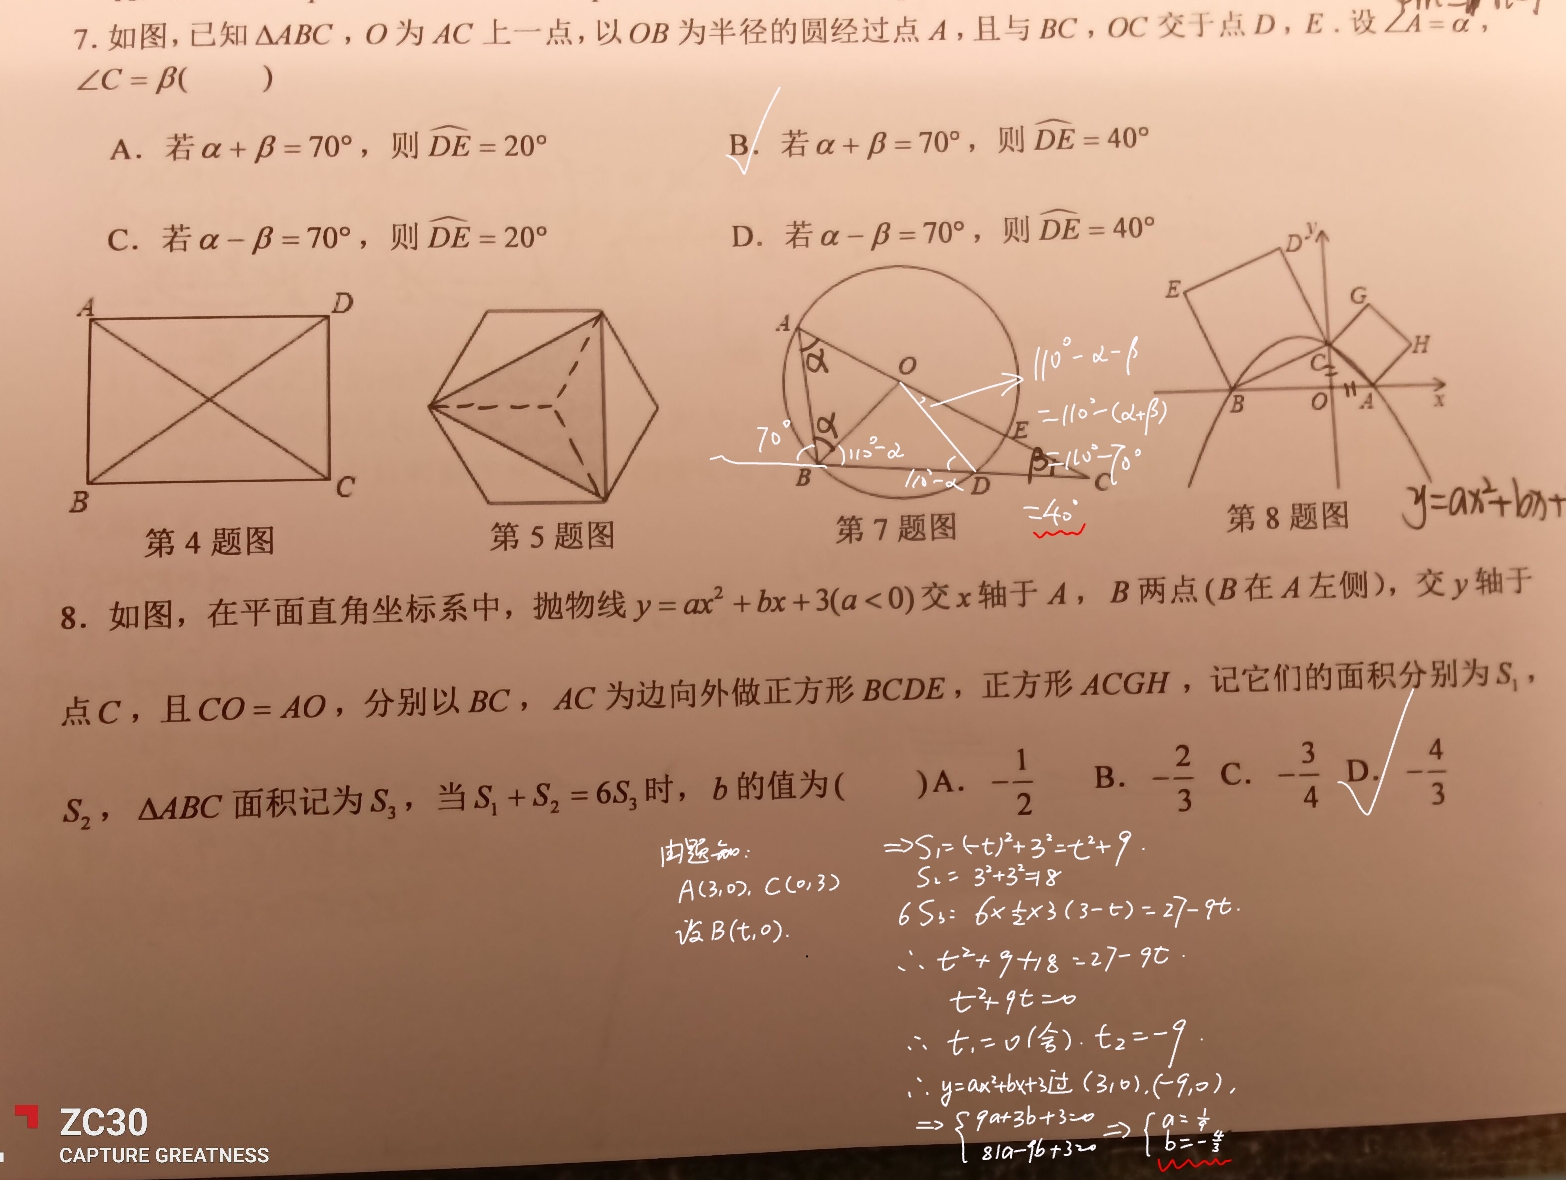 7. 如图，已知 ΔABC，O 为 AC 上一点，以 OB 为半径的圆经过点 A，且与 BC，OC 交于点 D，E．设 ∠A = α，
∠C = β(      )
A. 若 α + β = 70°，则 DE = 20°
B. 若 α + β = 70°，则 DE = 40°
C. 若 α − β = 70°，则 DE = 20°
D. 若 α − β = 70°，则 DE = 40°
A D B C
第 4 题图
第 5 题图
A O E B D C
α
α
70°
110°-α
110°-α
β
110°-α-β
=110°-(α+β)
=110°-70°
=40°
第 7 题图
E D y G C H B O A x
第 8 题图
y=ax²+bx+
8. 如图，在平面直角坐标系中，抛物线 y = ax² + bx + 3(a < 0) 交 x 轴于 A，B 两点(B 在 A 左侧)，交 y 轴于
点 C，且 CO = AO，分别以 BC，AC 为边向外做正方形 BCDE，正方形 ACGH，记它们的面积分别为 S₁，
S₂，ΔABC 面积记为 S₃，当 S₁ + S₂ = 6S₃ 时，b 的值为(      )A. −1/2 B. −2/3 C. −3/4 D. −4/3
由题知:
A(3,0). C(0,3)
设B(t,0).
⇒S₁=(-t)²+3²=t²+9.
S₂= 3²+3²=18
6S₃= 6×1/2×3(3-t)=27-9t.
∴ t²+9+18=27-9t.
t²+9t=0
∴ t₁=0(舍). t₂=-9.
∴ y=ax²+bx+3过 (3,0).(-9,0),
⇒ { 9a+3b+3=0 ⇒ { a=1/9
81a-9b+3=0 b=-4/3
ZC30
CAPTURE GREATNESS